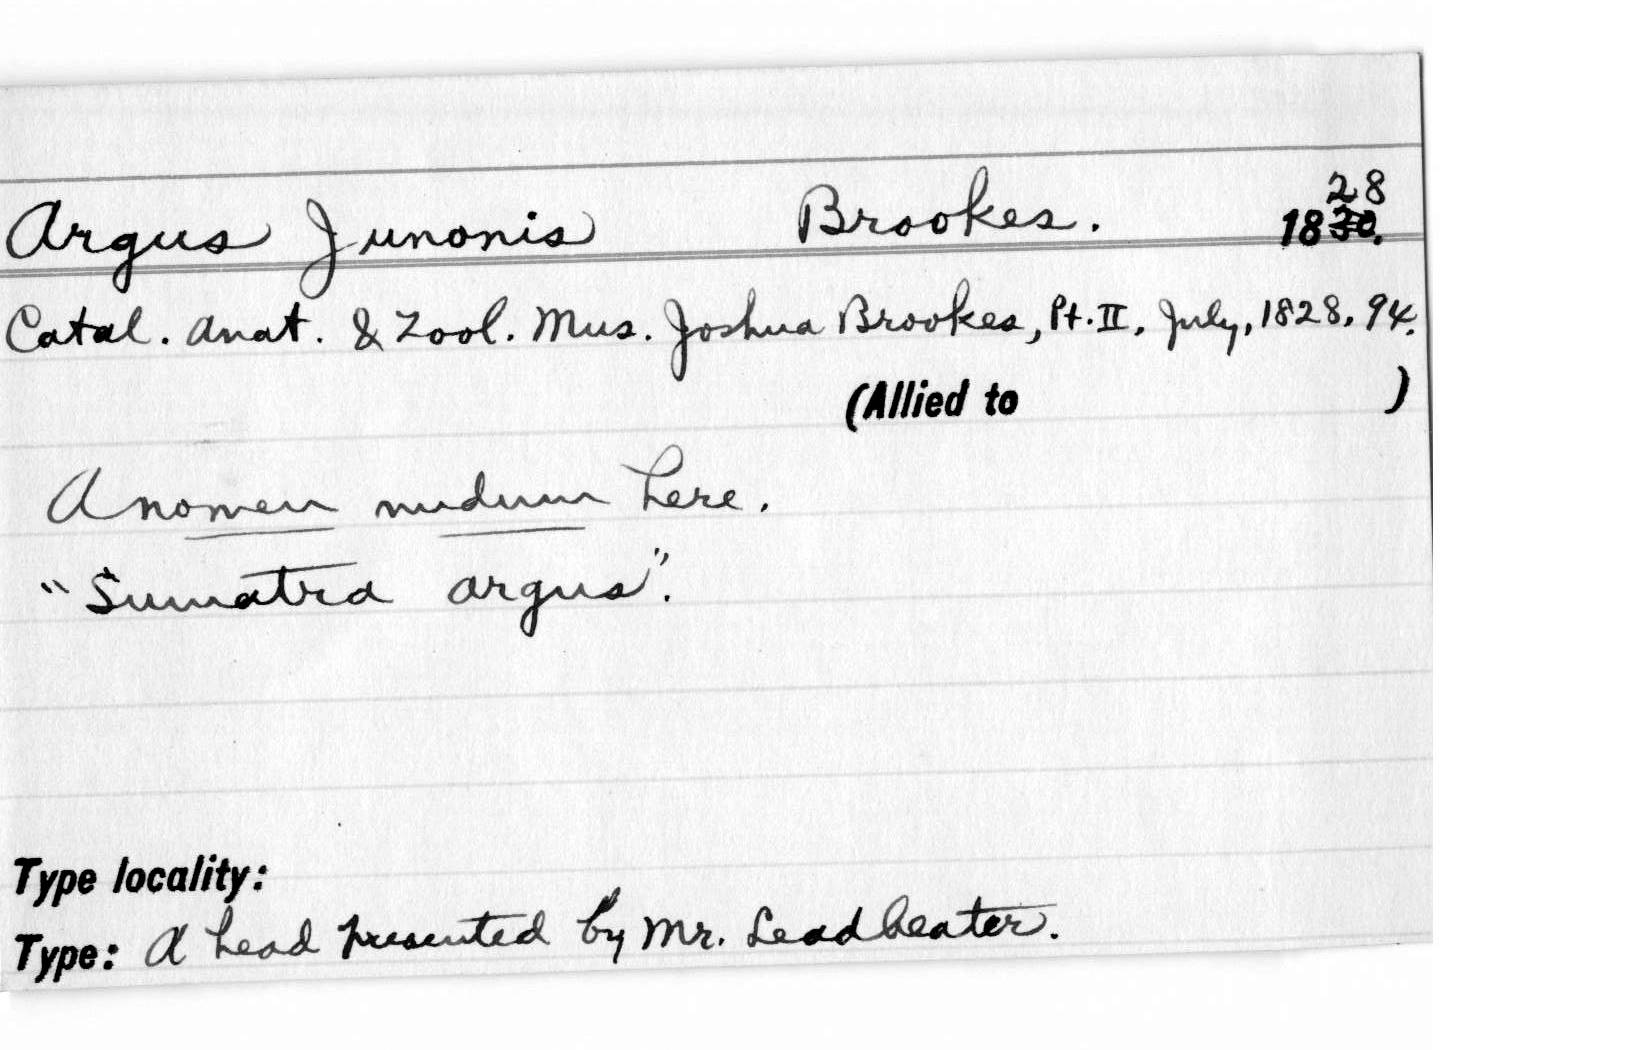 28
Argus Junonis Brookes. 1830.
Catal. Anat. & Zool. Mus. Joshua Brookes, Pt. II, July, 1828, 94.
(Allied to )
A nomen nudum here.
"Sumatra argus".
Type locality:
Type: A head presented by Mr. Leadbeater.